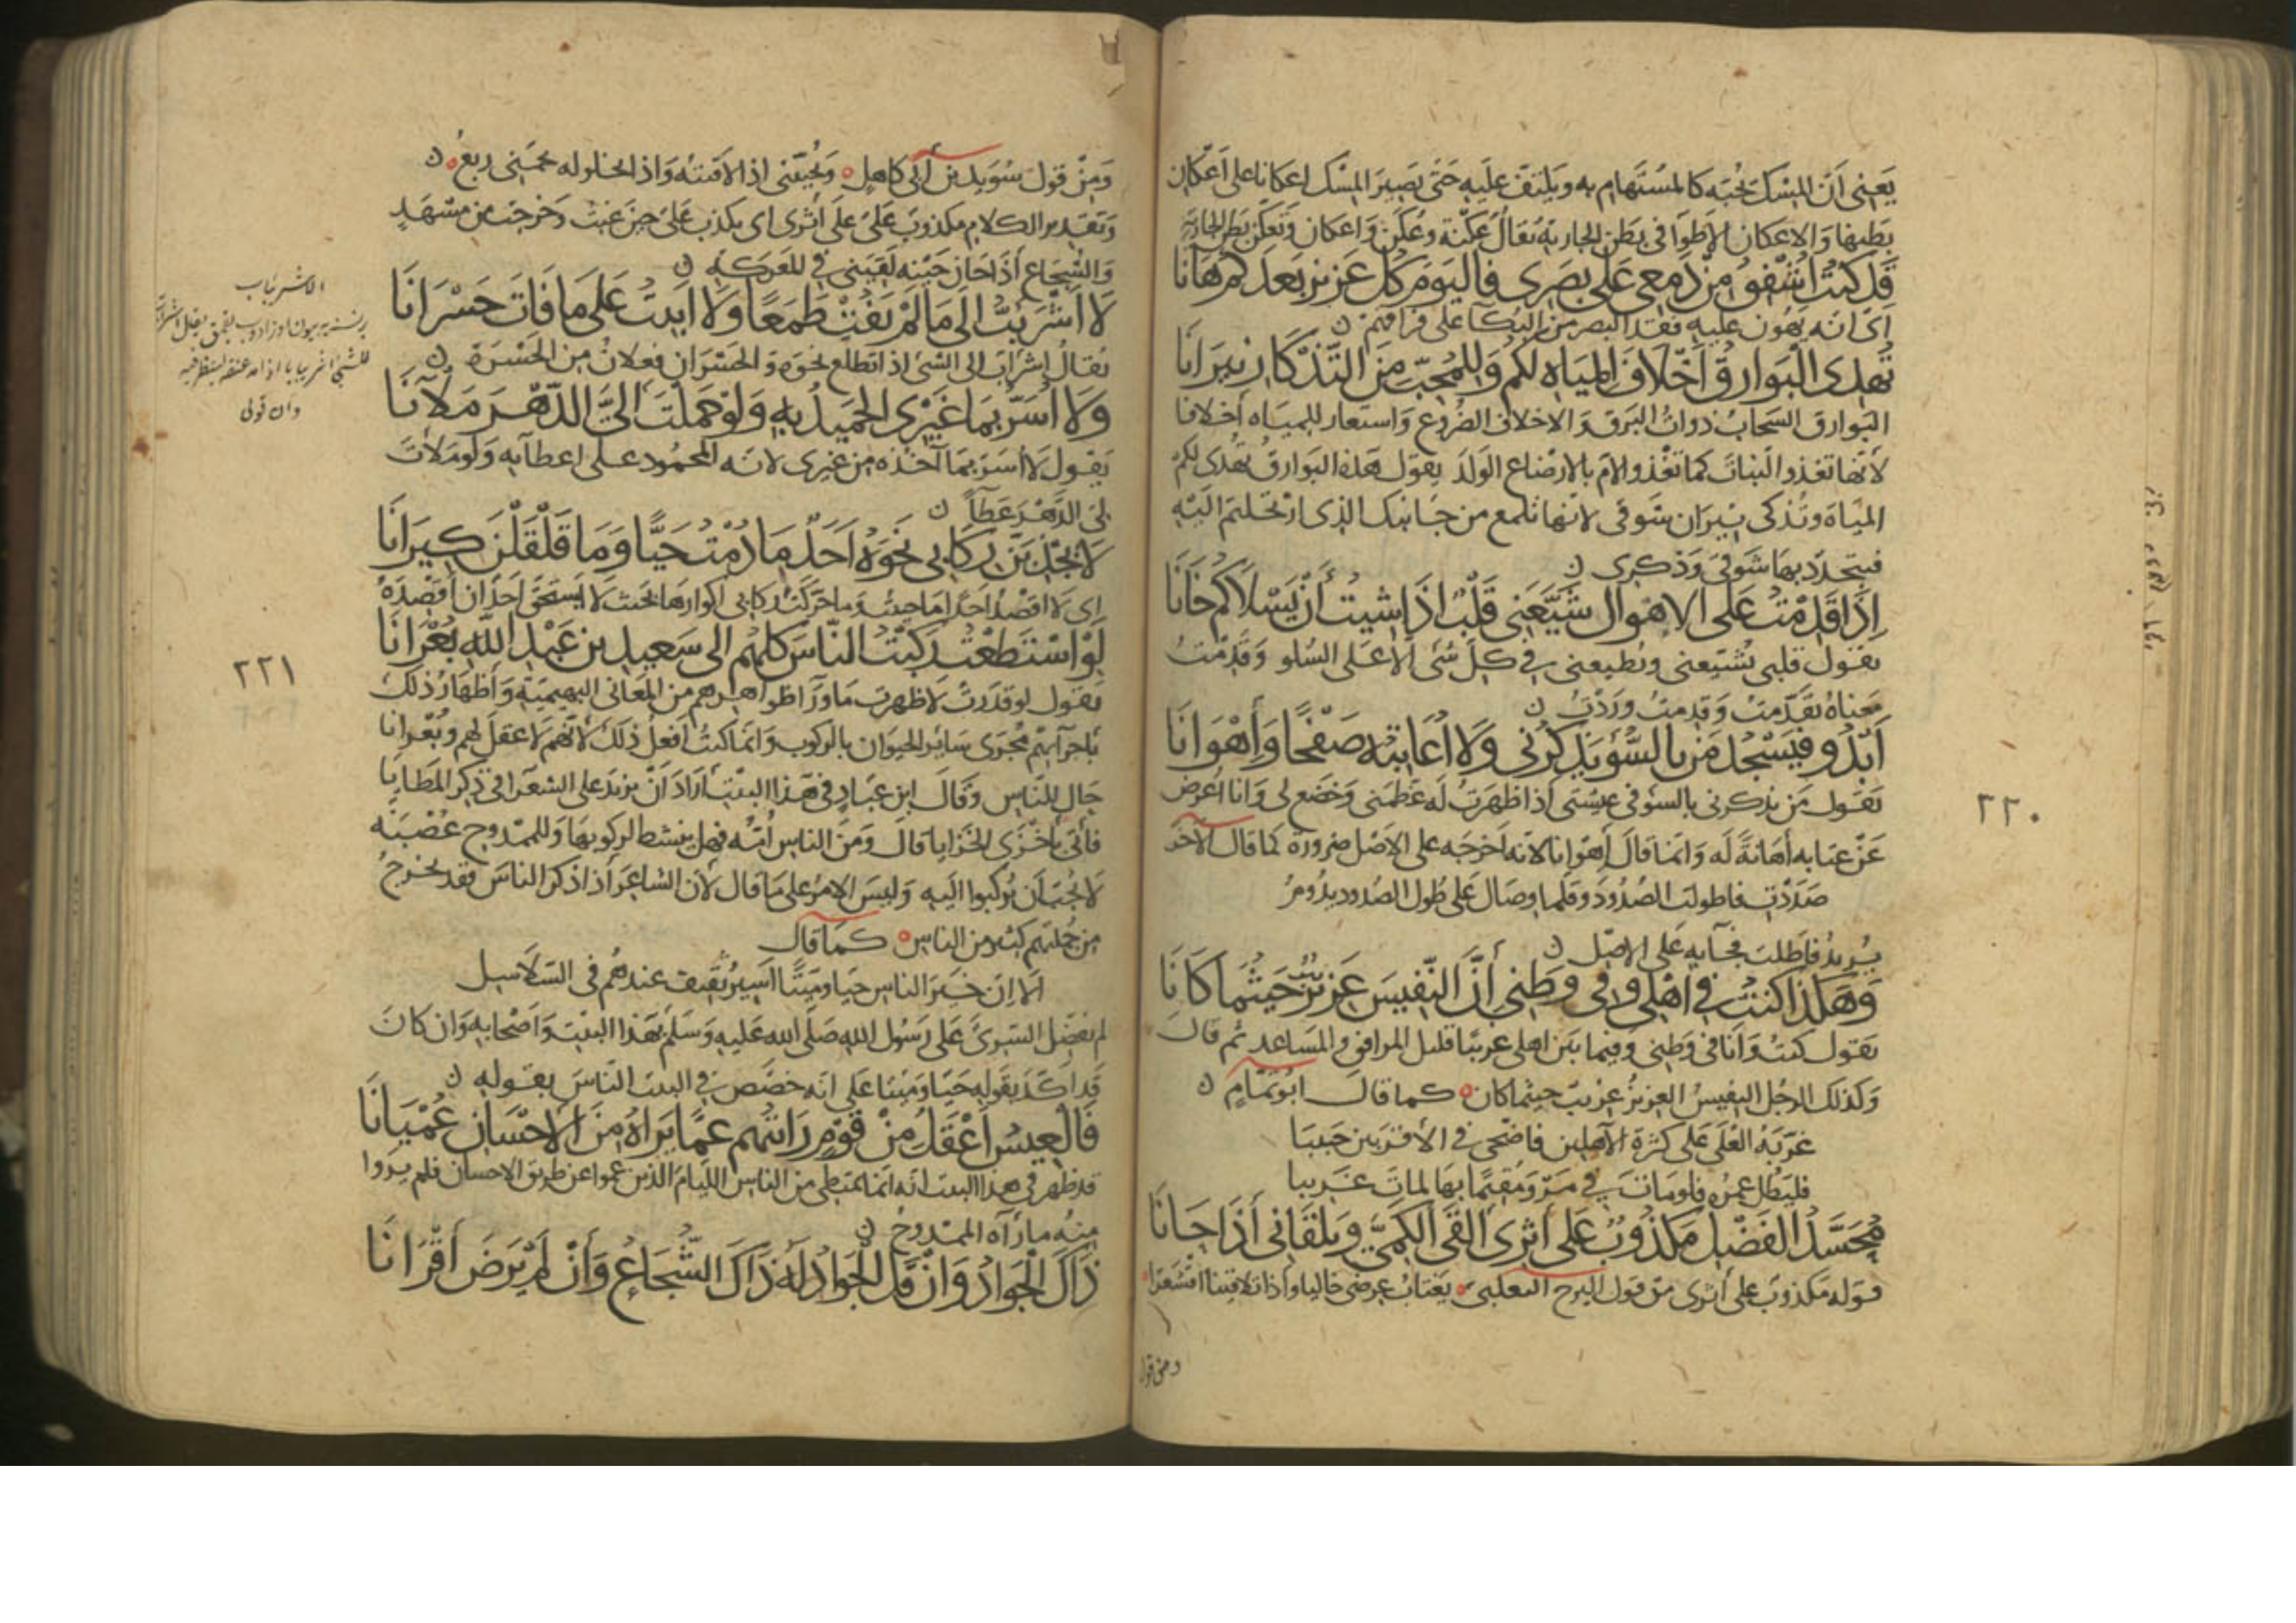 يعني أن المسك لحبه كالمستهام به ويلتف عليه حتى يصير المسك اعكانا على أعكان
بطنها والاعكان الأطواء في بطن الجارية يقال عكنة وعكن واعكان وتعكن بطن الجارية
قد كنت أشفق من دمعي على بصري فاليوم كل عزيز بعدكم هانا
اي انه يهون عليه فقد البصر من البكآ على فراقكم
تهدى البوارق أخلاف المياه لكم وللمحب من التذكار نيرانا
البوارق السحاب ذوات البرق والاخلاف الضروع واستعار للمياه أخلافا
لأنها تغذو النبات كما تغذو الام بالارضاع الولد يقول هذه البوارق تهدى لكم
المياه وتذكى نيران شوقى لانها تلمع من جانبك الذى ارتحلتم اليه
فيتجدد بها شوقى وذكرى
إذا قدمت على الاهوال شيعني قلب اذا شيت أن يسلاكم خانا
يقول قلبى يشيعنى ويطيعنى في كل شى الا على السلو وقدمت
معناه تقدمت وقدمت وردت
أبدو فيسجد من بالسوء يذكرني ولا أعاتبه صفحا وأهوانا
يقول من يذكرنى بالسوء فى غيبتى أذا ظهرت له عظمنى وخضع لى وانا أعرض
عن عتابه أهانة له وانما قال أهوانا لانه أخرجه على الاصل ضرورة كما قال الآخر
صددت فاطولت الصدود وقلما وصال على طول الصدود يدوم
يريد فاطلت فجآ به على الاصل
وهكذا كنت في أهلي وفي وطني أن النفيس عزيز حيثما كانا
يقول كنت وأنا فى وطنى وفيما بين اهلى غريبا قليل المرافق والمساعد ثم قال
وكذلك الرجل النفيس العزيز غريب حيثما كان كما قال ابو تمام
غربته العلى على كثرة الآهلين فاضحى في الأقربين جنيبا
فليطل عمره فلو مات في مرو مقيما بها لمات غريبا
محسد الفضل مكذوب على أثرى القى الكمى ويلقانى أذا حانا
قوله مكذوب على أثرى من قول البرج التعلبى يغتاب عرضى خاليا وأذا تلاقينا اقشعرا
ومن قول
٢٢٠
ومن قول سويد بن أبى كاهل ويحيينى اذا لاقيته واذا يخلو له لحمى رتع
وتقدير الكلام مكذوب على على أثرى اى يكذب على حين غبت وخرجت من مشهد
والشجاع أذا حان حينه لقينى في المعركة
لا أشرئب الى ما لم يفت طمعا ولا ابيت على ما فات حسرانا
يقال إشرأب الى الشى اذا تطلع نحوه والحسران فعلان من الحسرة
ولا أسر بما غيرى الحميد به ولو حملت الى الدهر ملآنا
يقول لا أسر بما آخذه من غيرى لانه المحمود على اعطآيه ولو ملأت
لى الدهر عطآ
لا يجذبن ركابى نحوه أحد ما دمت حيا وما قلقلن كيرانا
اى لا اقصد احدا ما حييت وما حركت ركابى اكوارها بحيث لا يستحق احد ان أقصده
لو استطعت ركبت الناس كلهم الى سعيد بن عبد الله بعرانا
يقول لو قدرت لاظهرت ما ورآ ظواهرهم من المعانى البهيمية وأظهار ذلك
باجرآئهم مجرى ساير الحيوان بالركوب وانما كنت أفعل ذلك لأنهم لا عقل لهم وبعرانا
حال للناس وقال ابن عباد فى هذا البيت أراد أن يزيد على الشعرا فى ذكر المطايا
فأتى بأخزى الخزايا قال ومن الناس أمه فهل ينشط لركوبها وللممدوح عصبة
لا يحب أن يركبوا اليه وليس الامر على ما قال لأن الشاعر أذا ذكر الناس فقد يخرج
من جملتهم كثير من الناس كما قال
ألا ان خير الناس حيا وميتا أسير ثقيف عندهم فى السلاسل
لم يفضل السرى على رسول الله صلى الله عليه وسلم بهذا البيت وأصحابه وان كان
قد أكد بقوله حيا وميتا على انه خصص في البيت الناس بقوله
فالعيس أعقل من قوم رأيتهم عما يراه من الاحسان عميانا
قد ظهر فى هذا البيت انه انما يمتطى من الناس الليام الذين عموا عن طريق الاحسان فلم يروا
منه ما رآه الممدوح
ذاك الجواد وان قل الجواد له ذاك الشجاع وأن لم يرض أقرانا
٢٢١